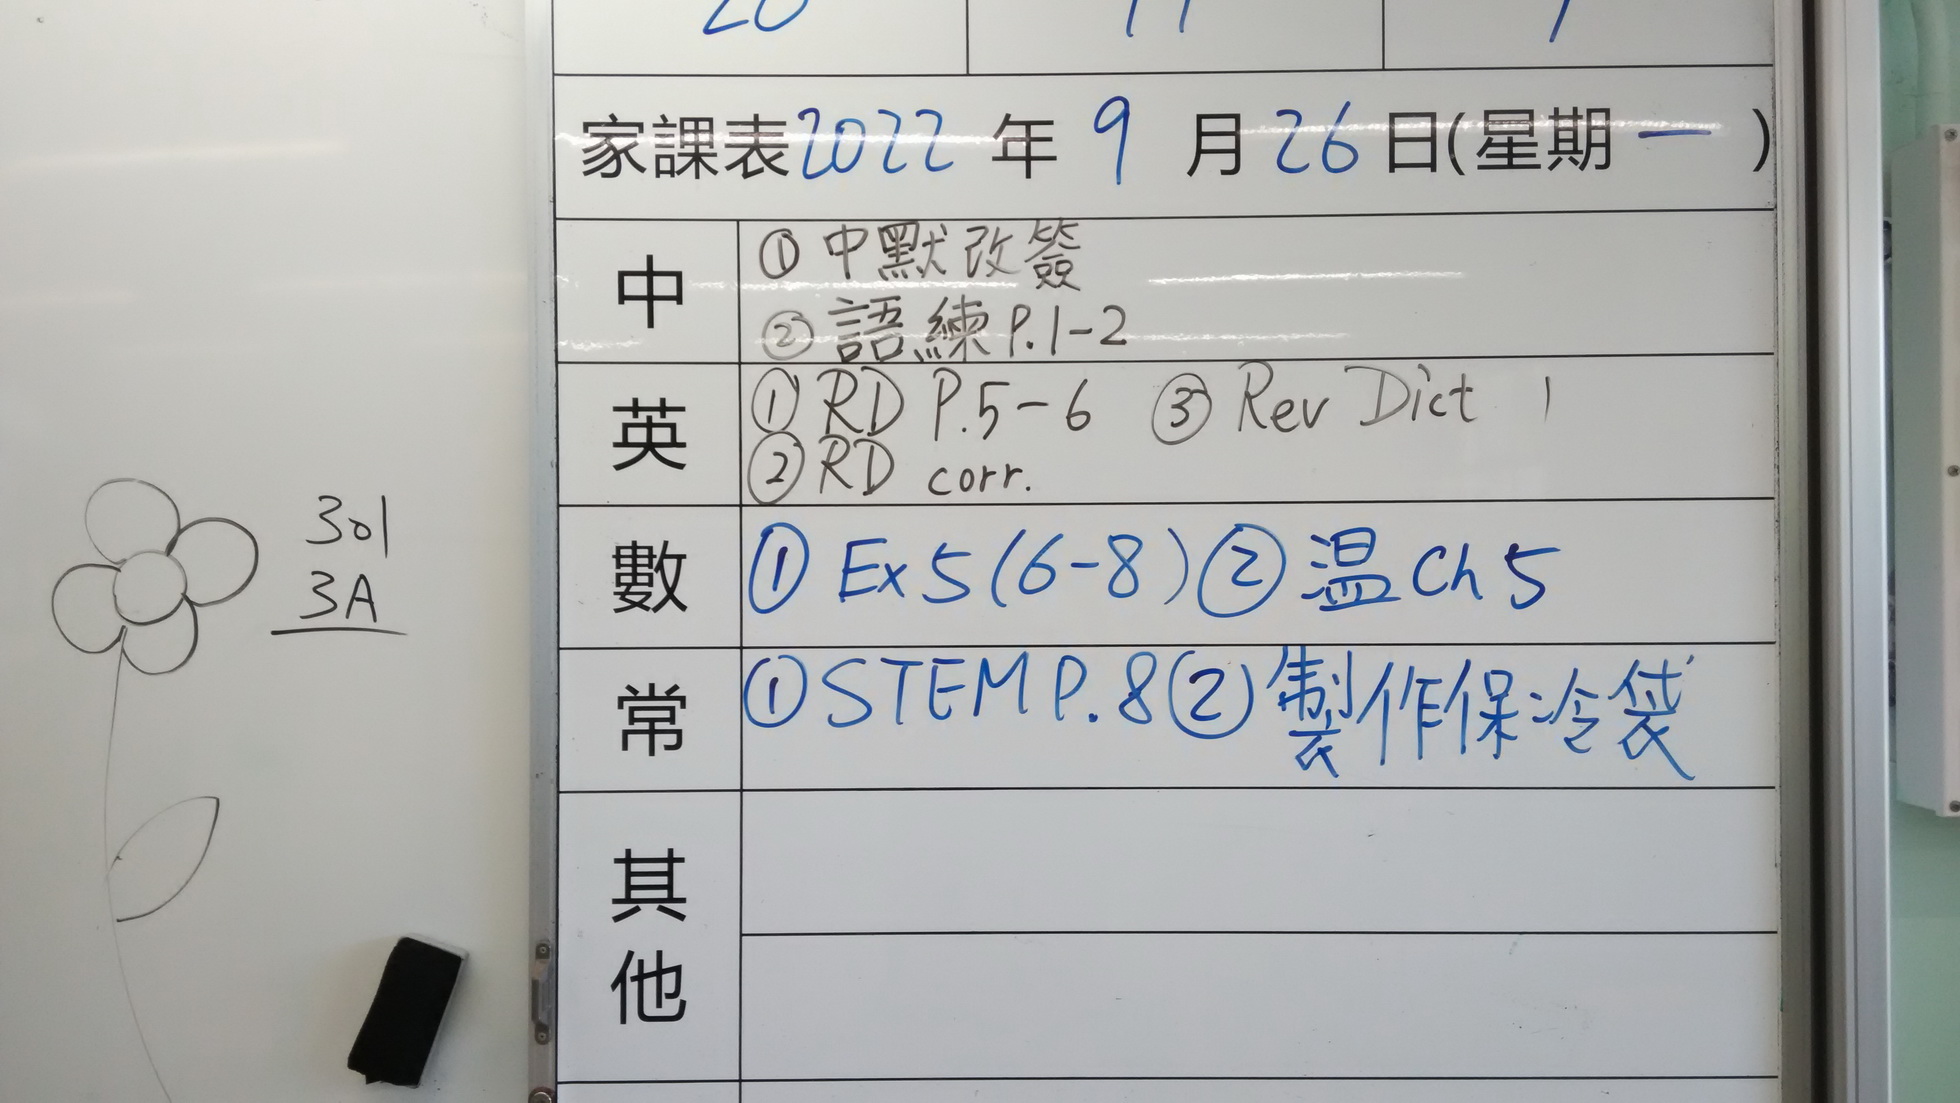 家課表2022年9月26日(星期一)
中
① 中默改簽
② 語練P.1-2
英
① RD P.5-6 ③ Rev Dict 1
② RD corr.
數
① Ex5(6-8) ② 温Ch5
常
① STEM P.8 ② 製作保冷袋
其他
301
3A